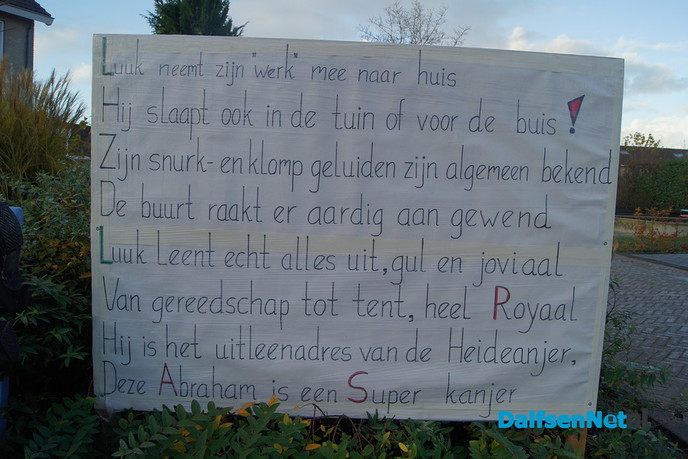 Luuk neemt zijn "werk" mee naar huis
Hij slaapt ook in de tuin of voor de buis !
Zijn snurk- en klomp geluiden zijn algemeen bekend
De buurt raakt er aardig aan gewend
Luuk Leent echt alles uit, gul en joviaal
Van gereedschap tot tent, heel Royaal
Hij is het uitleenadres van de Heideanjer,
Deze Abraham is een Super kanjer
DalfsenNet.nl